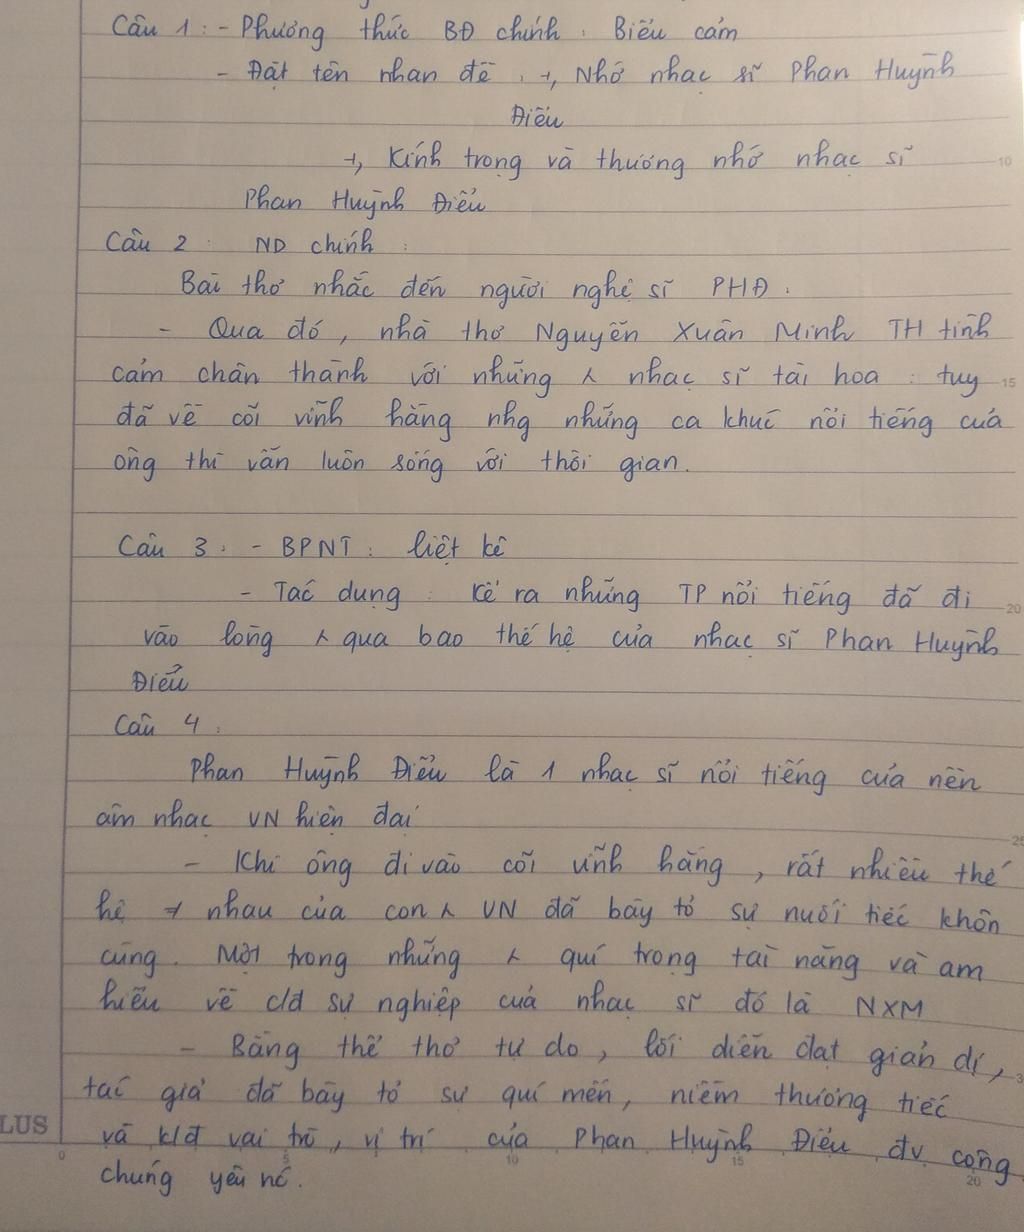 Câu 1 : - Phương thức BĐ chính : Biểu cảm
- Đặt tên nhan đề : +, Nhớ nhạc sĩ Phan Huỳnh
Điểu
+, Kính trọng và thương nhớ nhạc sĩ
Phan Huỳnh Điểu
Câu 2 : ND chính :
Bài thơ nhắc đến người nghệ sĩ PHĐ.
- Qua đó, nhà thơ Nguyễn Xuân Minh TH tình
cảm chân thành với những nhạc sĩ tài hoa : tuy
đã về cõi vĩnh hằng nhg những ca khúc nổi tiếng của
ông thì vẫn luôn sống với thời gian.
Câu 3 : - BPNT : liệt kê
- Tác dụng : Kể ra những TP nổi tiếng đã đi
vào lòng qua bao thế hệ của nhạc sĩ Phan Huỳnh
Điểu
Câu 4 :
Phan Huỳnh Điểu là 1 nhạc sĩ nổi tiếng của nền
âm nhạc VN hiện đại
- Khi ông đi vào cõi vĩnh hằng, rất nhiều thế
hệ ≠ nhau của con VN đã bày tỏ sự nuối tiếc khôn
cùng. Một trong những quí trọng tài năng và am
hiểu về c/đ sự nghiệp của nhạc sĩ đó là NXM
- Bằng thể thơ tự do, lối diễn đạt giản dị,
tác giả đã bày tỏ sự quí mến, niềm thương tiếc
và k/đ vai trò, vị trí của Phan Huỳnh Điểu đv công
chúng yêu nó.
10
15
20
25
3
LUS
0 5 10 15 20